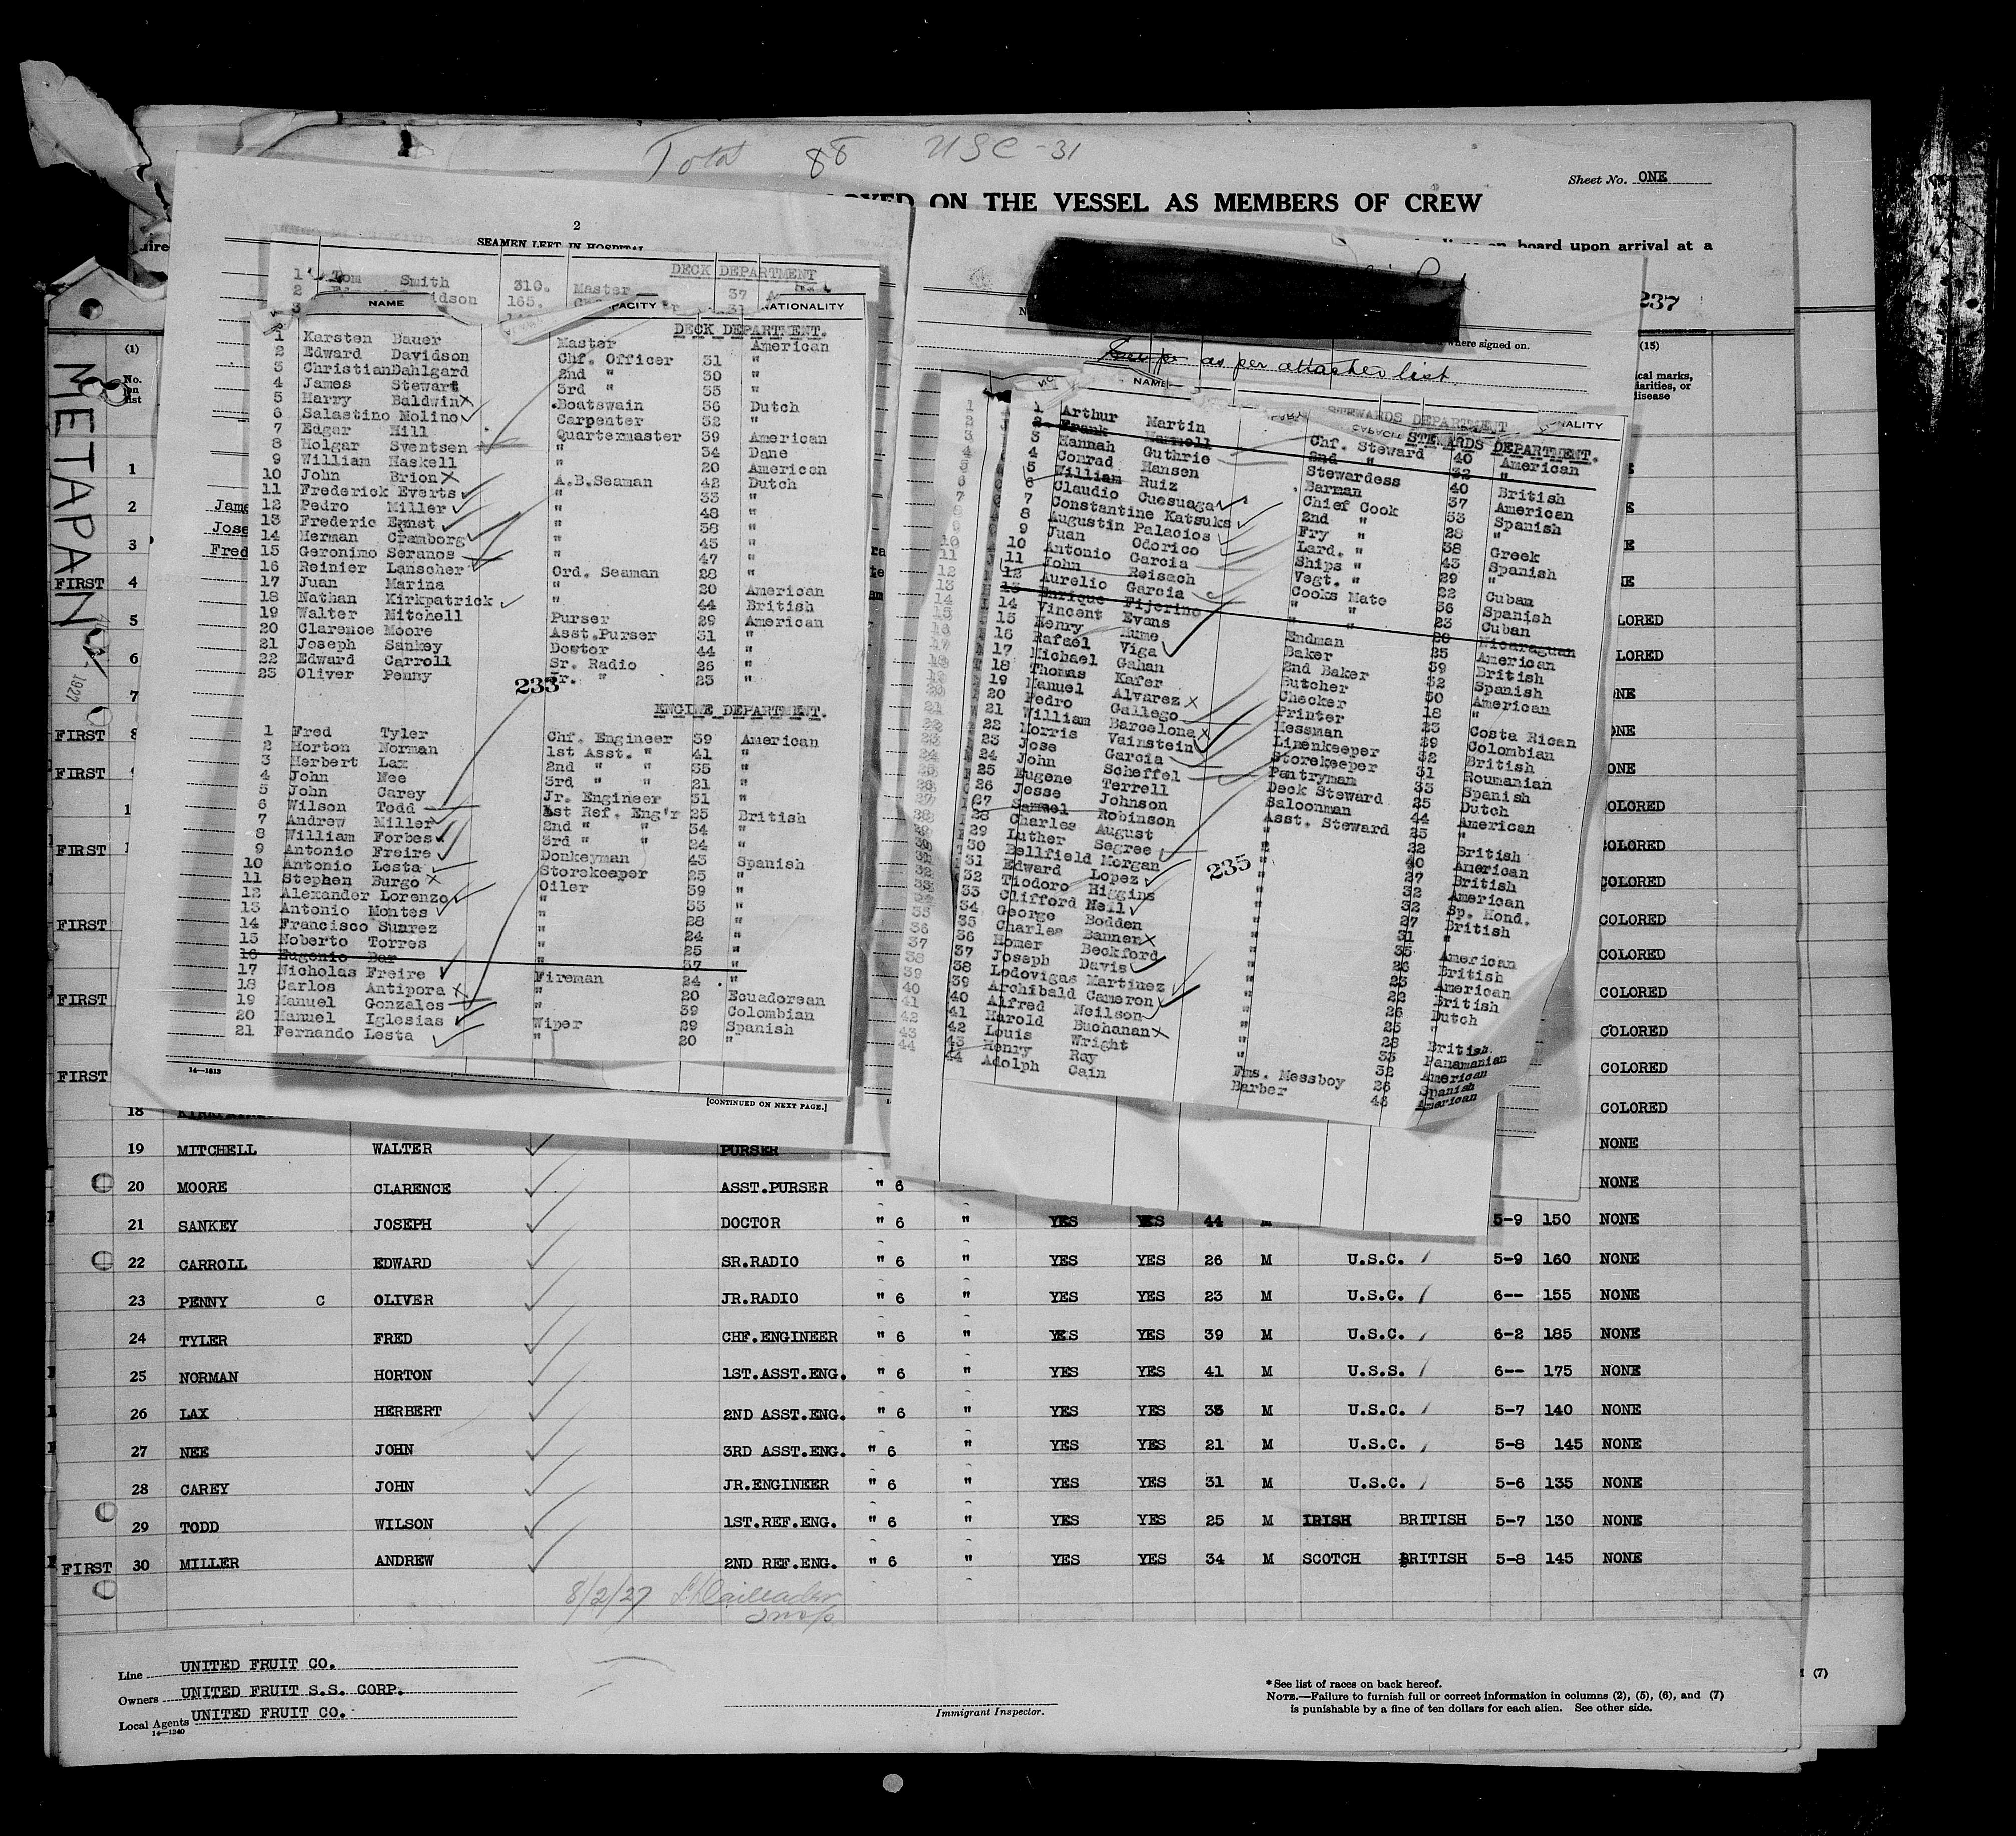 Total 88 USC-31
Sheet No. ONE
ON THE VESSEL AS MEMBERS OF CREW
on board upon arrival at a
237
METAPAN
1927
2
SEAMEN LEFT IN HOSPITAL
DECK DEPARTMENT
1 Tom Smith 310. Master 37
2 165. 31
NAME NATIONALITY
DECK DEPARTMENT.
1 Karsten Bauer Master American
2 Edward Davidson Chf. Officer 31 "
3 Christian Dahlgard 2nd " 30 "
4 James Stewart 3rd " 35 "
5 Harry Baldwin Boatswain 36 Dutch
6 Salastino Molino Carpenter 32 "
7 Edgar Hill Quartermaster 39 American
8 Holgar Sventsen " 34 Dane
9 William Haskell " 20 American
10 John Brion A.B.Seaman 42 Dutch
11 Frederick Everts " 33 "
12 Pedro Miller " 48 "
13 Frederic Ernst " 38 "
14 Herman Cramborg " 45 "
15 Geronimo Seranos " 47 "
16 Reinier Lanscher Ord. Seaman 28 "
17 Juan Marina " 20 American
18 Nathan Kirkpatrick " 44 British
19 Walter Mitchell Purser 29 American
20 Clarence Moore Asst.Purser 31 "
21 Joseph Sankey Doctor 44 "
22 Edward Carroll Sr. Radio 26 "
23 Oliver Penny Jr. " 25 "
233
ENGINE DEPARTMENT.
1 Fred Tyler Chf. Engineer 39 American
2 Horton Norman 1st Asst. " 41 "
3 Herbert Lax 2nd " " 35 "
4 John Nee 3rd " " 21 "
5 John Carey Jr. Engineer 31 "
6 Wilson Todd 1st Ref. Eng'r 25 British
7 Andrew Miller 2nd " " 34 "
8 William Forbes 3rd " " 24 "
9 Antonio Freire Donkeyman 43 Spanish
10 Antonio Lesta Storekeeper 25 "
11 Stephen Burgo Oiler 39 "
12 Alexander Lorenzo " 33 "
13 Antonio Montes " 28 "
14 Francisco Suarez " 24 "
15 Noberto Torres " 25 "
16 Eugenio Bar " 37 "
17 Nicholas Freire Fireman 24 "
18 Carlos Antipora " 20 Ecuadorean
19 Manuel Gonzales " 39 Colombian
20 Manuel Iglesias Wiper 29 Spanish
21 Fernando Lesta " 20 "
14—1613
[CONTINUED ON NEXT PAGE.]
where signed on.
as per attached list
NAME
STEWARDS DEPARTMENT
STEWARDS DEPARTMENT.
1 Arthur Martin Chf. Steward 40 American
2 Frank Mannell 2nd " 32 "
3 Hannah Guthrie Stewardess 40 British
4 Conrad Hansen Barman 37 American
5 William Ruiz Chief Cook 53 Spanish
6 Claudio Cuesuaga 2nd " 28 "
7 Constantine Katsuks Fry " 38 Greek
8 Augustin Palacios Lard. " 43 Spanish
9 Juan Odorico Ships " 29 "
10 Antonio Garcia Vegt. " 22 Cuban
11 John Reisach Cooks Mate 36 Spanish
12 Aurelio Garcia " " 23 Cuban
13 Enrique Fijerino " " 20 Nicaraguan
14 Vincent Evans Endman 25 American
15 Henry Hume Baker 39 British
16 Rafael Viga 2nd Baker 32 Spanish
17 Michael Gahan Butcher 30 American
18 Thomas Kafer Checker 18 "
19 Manuel Alvarez Printer 23 Costa Rican
20 Pedro Gallego Messman 29 Colombian
21 William Barcelona Linenkeeper 32 British
22 Morris Vainstein Storekeeper 31 Roumanian
23 Jose Garcia Pantryman 35 Spanish
24 John Scheffel Deck Steward 25 Dutch
25 Eugene Terrell Saloonman 44 American
26 Jesse Johnson Asst. Steward 25 "
27 Samuel Robinson " 22 British
28 Charles August " 40 American
29 Luther Segree " 27 British
30 Bellfield Morgan " 32 American
31 Edward Lopez " 32 Sp. Hond.
32 Tiodoro Higgins " 27 British
33 Clifford Neil " 31 "
34 George Bodden " 35 American
35 Charles Banner " 26 British
36 Homer Beckford " 23 American
37 Joseph Davis " 22 British
38 Lodovigas Martinez " 26 Dutch
39 Archibald Cameron " 25 "
40 Alfred Neilson " 28 British
41 Harold Buchanan " 35 Panamanian
42 Louis Wright " 32 American
43 Henry Ray Fms. Messboy 26 Spanish
44 Adolph Cain Barber 48 American
235
(1) (15)
No. on list
1
2
3
FIRST 4
5 COLORED
6 COLORED
7 NONE
FIRST 8 NONE
FIRST
COLORED
FIRST COLORED
COLORED
COLORED
FIRST COLORED
COLORED
FIRST COLORED
COLORED
FIRST COLORED
18 COLORED
19 MITCHELL WALTER PURSER NONE
20 MOORE CLARENCE ASST.PURSER " 6 NONE
21 SANKEY JOSEPH DOCTOR " 6 " YES YES 44 M 5-9 150 NONE
22 CARROLL EDWARD SR.RADIO " 6 " YES YES 26 M U.S.C. 5-9 160 NONE
23 PENNY C OLIVER JR.RADIO " 6 " YES YES 23 M U.S.C. 6-- 155 NONE
24 TYLER FRED CHF.ENGINEER " 6 " YES YES 39 M U.S.C. 6-2 185 NONE
25 NORMAN HORTON 1ST.ASST.ENG. " 6 " YES YES 41 M U.S.S. 6-- 175 NONE
26 LAX HERBERT 2ND ASST.ENG. " 6 " YES YES 35 M U.S.C. 5-7 140 NONE
27 NEE JOHN 3RD ASST.ENG. " 6 " YES YES 21 M U.S.C. 5-8 145 NONE
28 CAREY JOHN JR.ENGINEER " 6 " YES YES 31 M U.S.C. 5-6 135 NONE
29 TODD WILSON 1ST.REF.ENG. " 6 " YES YES 25 M IRISH BRITISH 5-7 130 NONE
FIRST 30 MILLER ANDREW 2ND REF.ENG. " 6 " YES YES 34 M SCOTCH BRITISH 5-8 145 NONE
8/2/27
Line UNITED FRUIT CO.
Owners UNITED FRUIT S.S. CORP.
Local Agents UNITED FRUIT CO.
14—1240
Immigrant Inspector.
*See list of races on back hereof.
NOTE.—Failure to furnish full or correct information in columns (2), (5), (6), and (7)
is punishable by a fine of ten dollars for each alien. See other side.
(7)